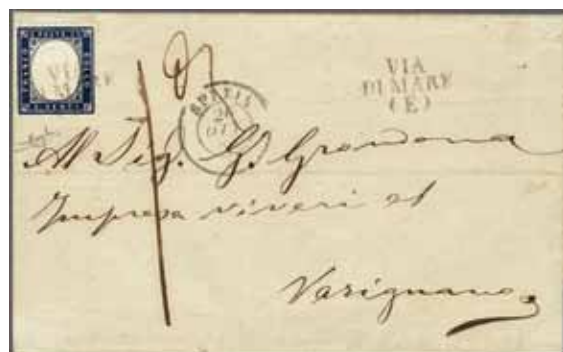 VIA
DI MARE
(E)
SPEZIA
Al Sig. G. Grondona
Impresa viveri al
Varignano